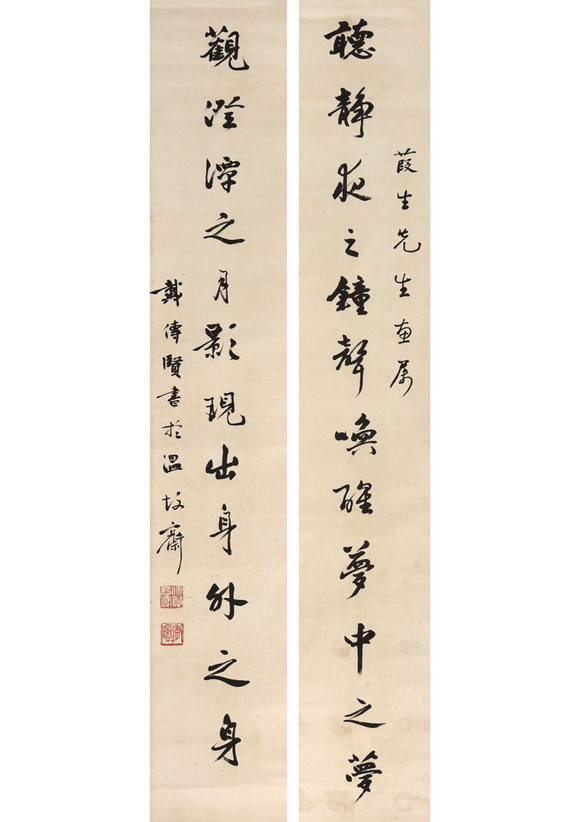 葭生先生惠属
聽靜夜之鐘聲喚醒夢中之夢
觀澄潭之月影現出身外之身
戴傳賢書於温故齋